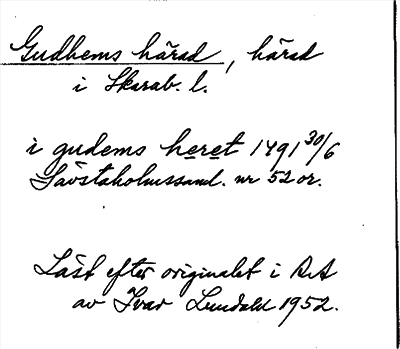 Gudhems härad, härad
i Skarab. l.
i gudems heret 1491 30/6
Sävstaholmssaml. nr 52 or.
Läst efter originalet i RA
av Ivar Lundahl 1952.